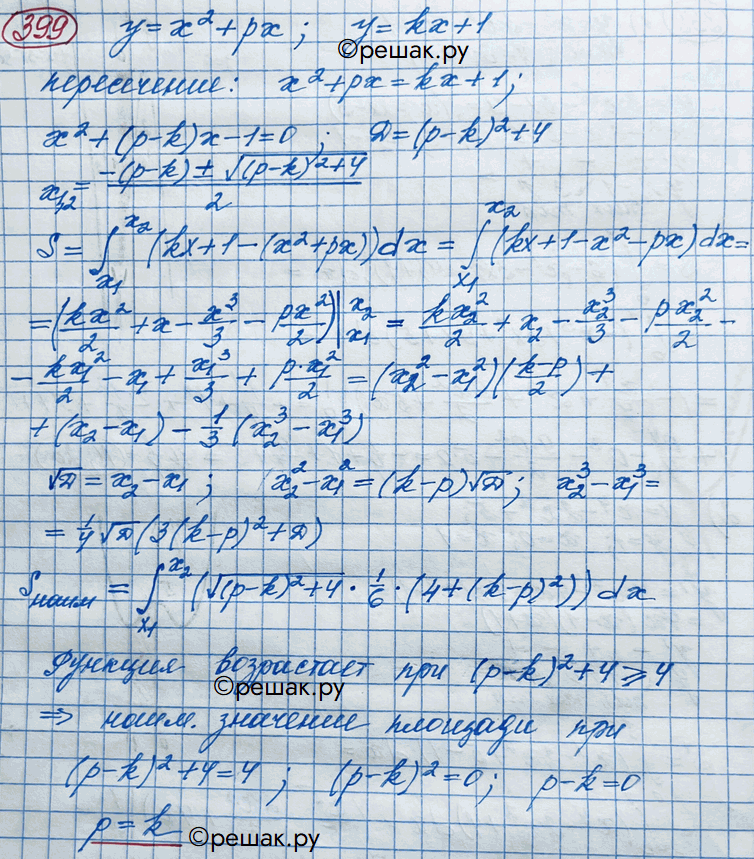 399 y = x² + px ; y = kx + 1
©решак.ру
пересечение: x² + px = kx + 1;
x² + (p-k)x - 1 = 0 ; D = (p-k)² + 4
x₁,₂ = (-(p-k) ± √((p-k)² + 4))/2
S = ∫_{x₁}^{x₂} (kx + 1 - (x² + px))dx = ∫_{x₁}^{x₂} (kx + 1 - x² - px)dx =
= (kx²/2 + x - x³/3 - px²/2)|_{x₁}^{x₂} = kx₂²/2 + x₂ - x₂³/3 - px₂²/2 -
- kx₁²/2 - x₁ + x₁³/3 + p·x₁²/2 = (x₂² - x₁²)((k-p)/2) +
+ (x₂ - x₁) - 1/3 (x₂³ - x₁³)
√D = x₂ - x₁ ; x₂² - x₁² = (k-p)√D ; x₂³ - x₁³ =
= 1/4 √D (3(k-p)² + D)
Sнаим = ∫_{x₁}^{x₂} (√((p-k)² + 4) · 1/6 · (4 + (k-p)²)) dx
Функция возрастает при (p-k)² + 4 ⩾ 4
©решак.ру
⇒ наим. значение площади при
(p-k)² + 4 = 4 ; (p-k)² = 0 ; p - k = 0
p = k ©решак.ру